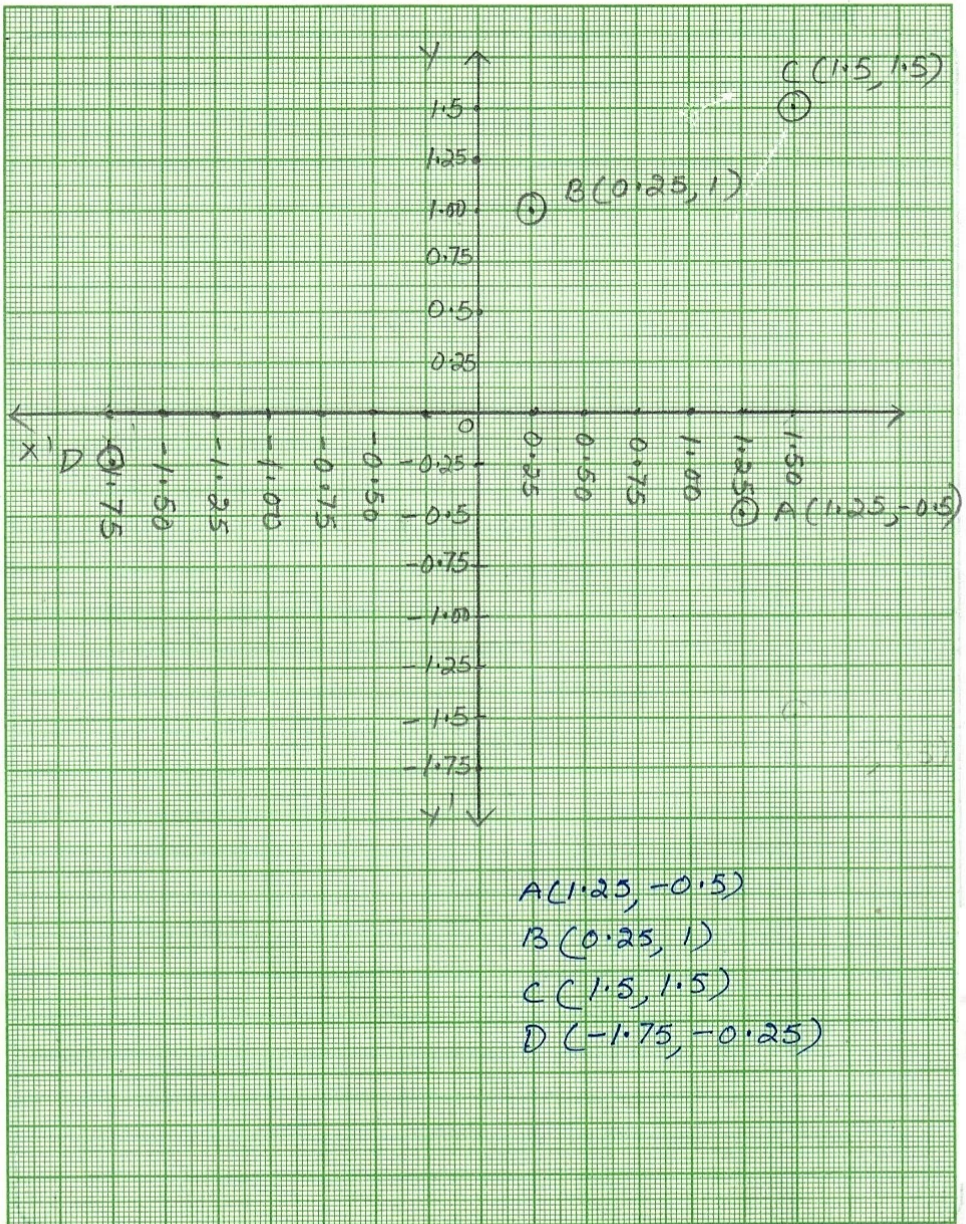 Y
C (1.5, 1.5)
1.5
1.25
B(0.25, 1)
1.00
0.75
0.5
0.25
0
X' D -1.75 -1.50 -1.25 -1.00 -0.75 -0.50 0.25 0.50 0.75 1.00 1.25 1.50
-0.25
-0.5
A(1.25, -0.5)
-0.75
-1.00
-1.25
-1.5
-1.75
Y'
A(1.25, -0.5)
B(0.25, 1)
C(1.5, 1.5)
D(-1.75, -0.25)